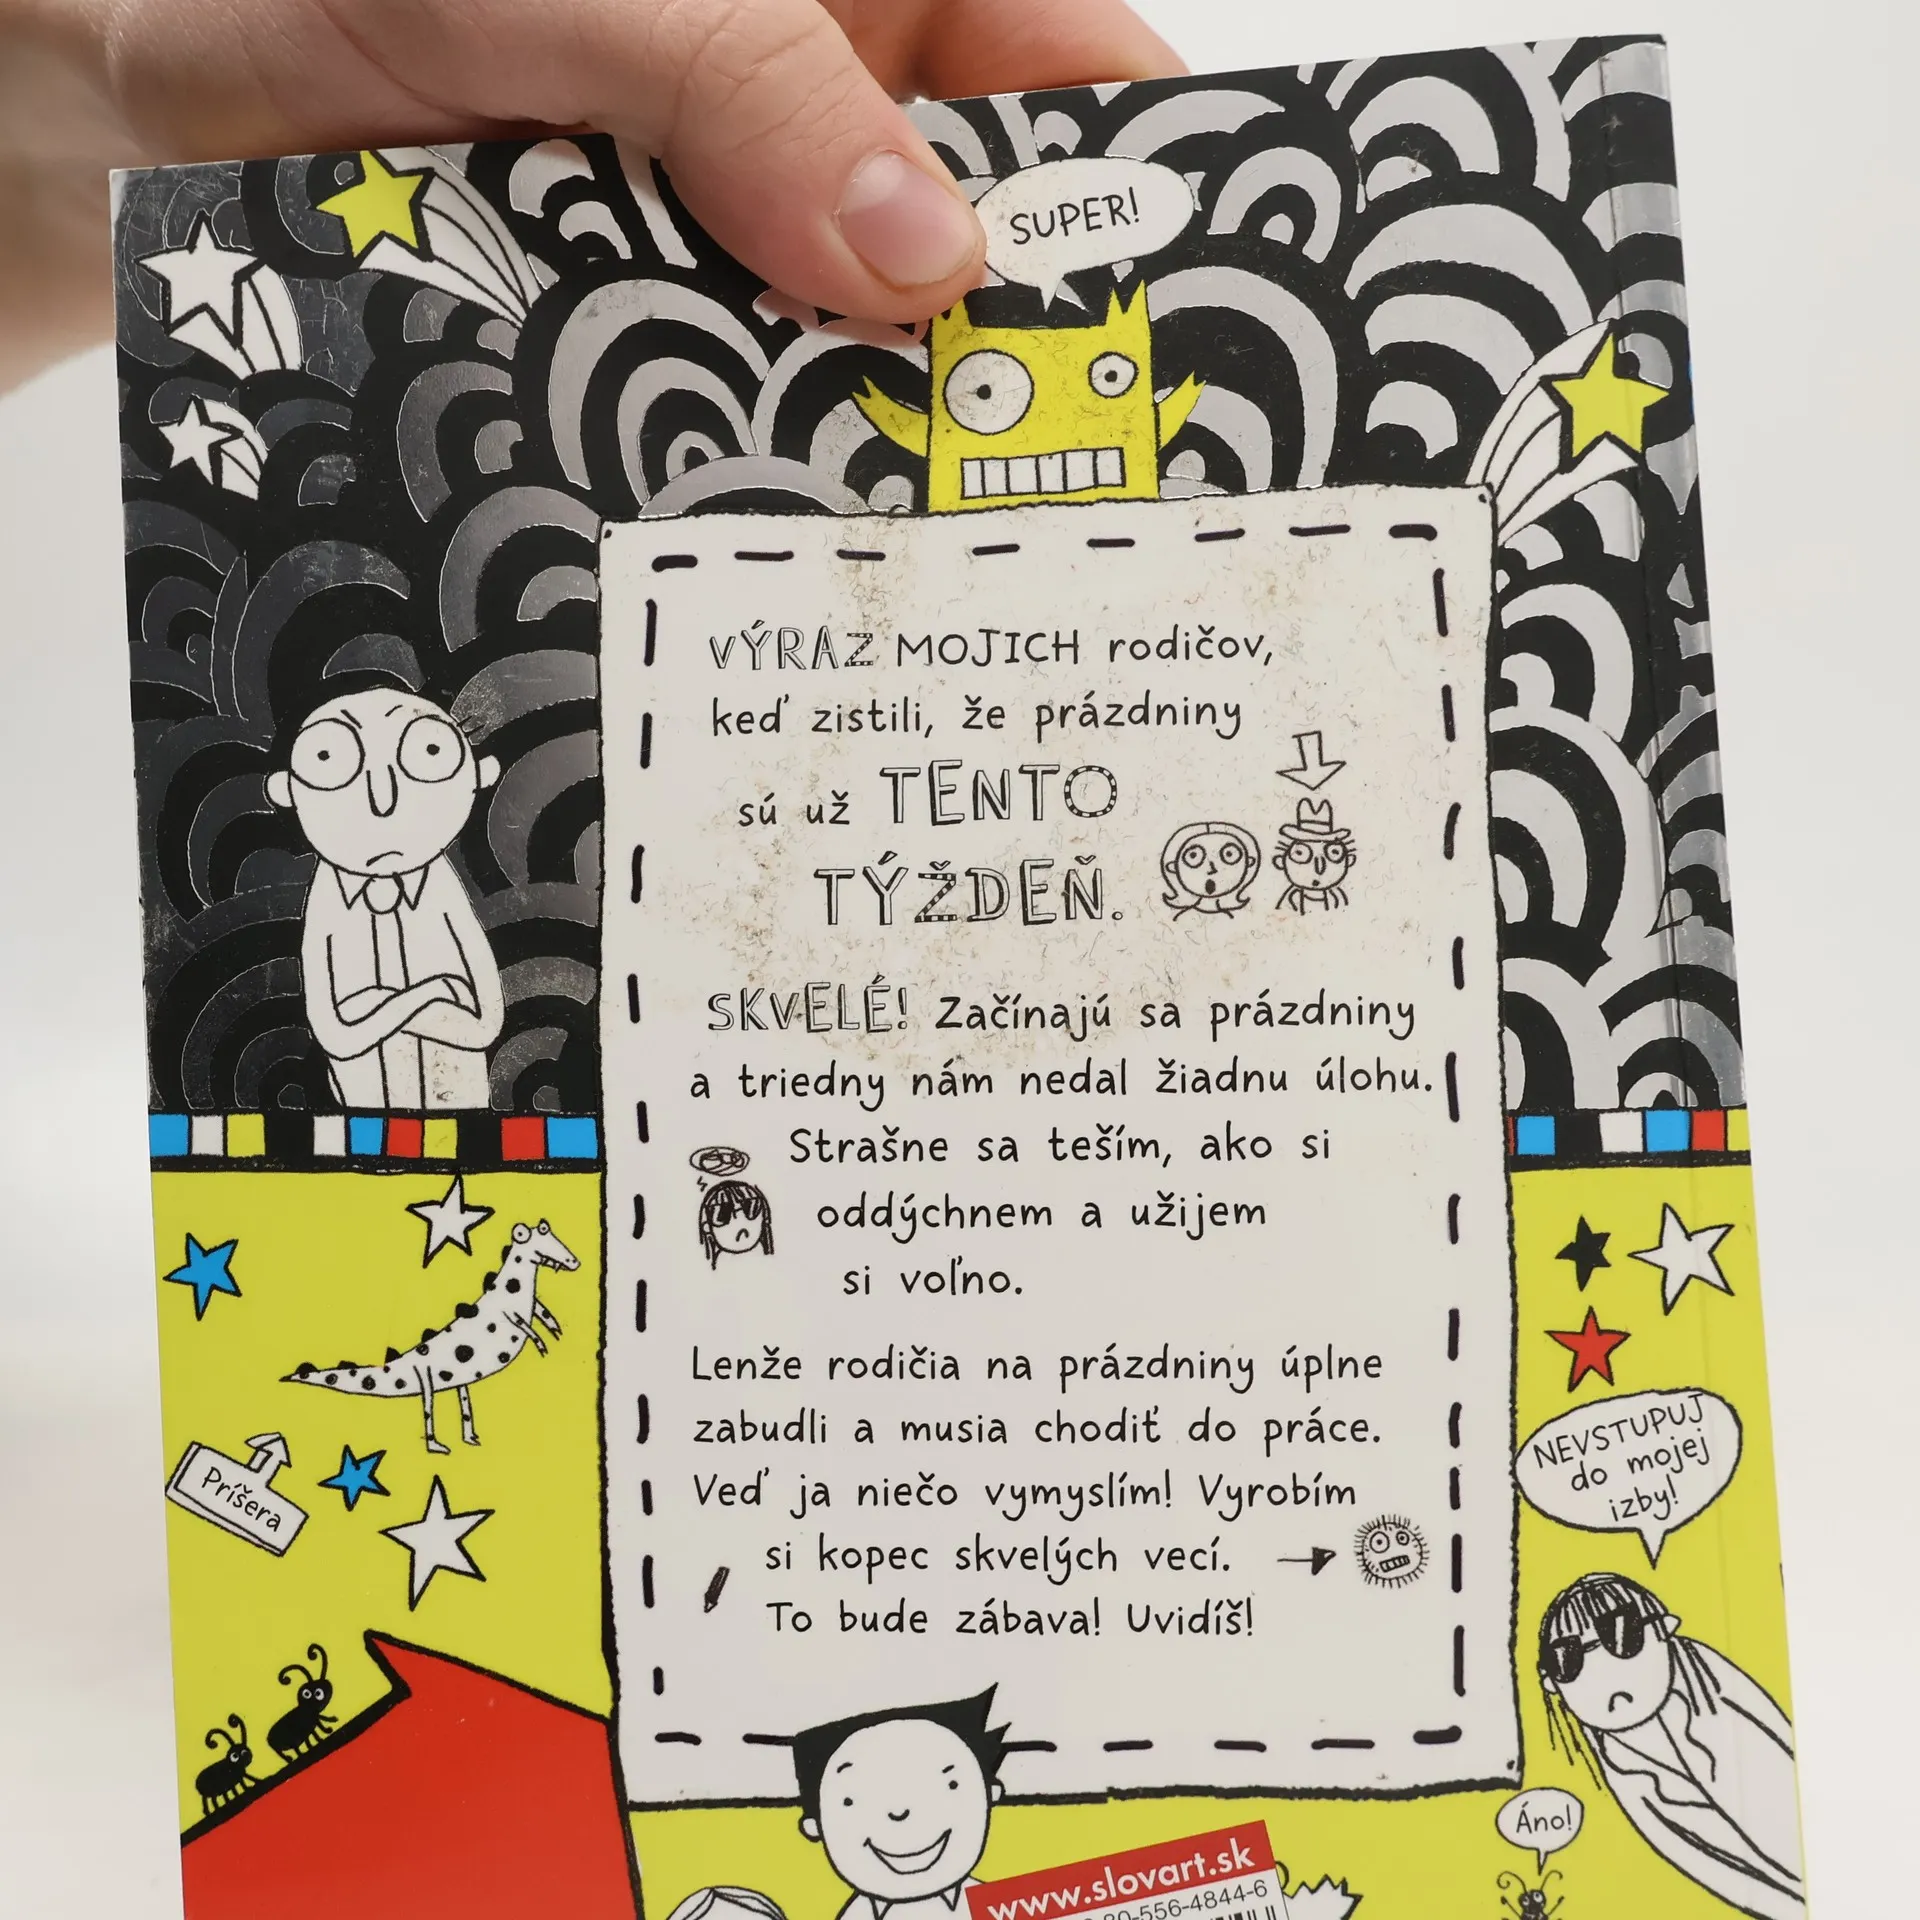 SUPER!
VÝRAZ MOJICH rodičov,
keď zistili, že prázdniny
sú už TENTO
TÝŽDEŇ.
SKVELÉ! Začínajú sa prázdniny
a triedny nám nedal žiadnu úlohu.
Strašne sa teším, ako si
oddýchnem a užijem
si voľno.
Lenže rodičia na prázdniny úplne
zabudli a musia chodiť do práce.
Veď ja niečo vymyslím! Vyrobím
si kopec skvelých vecí.
To bude zábava! Uvidíš!
Príšera
NEVSTUPUJ
do mojej
izby!
Áno!
www.slovart.sk
80-556-4844-6